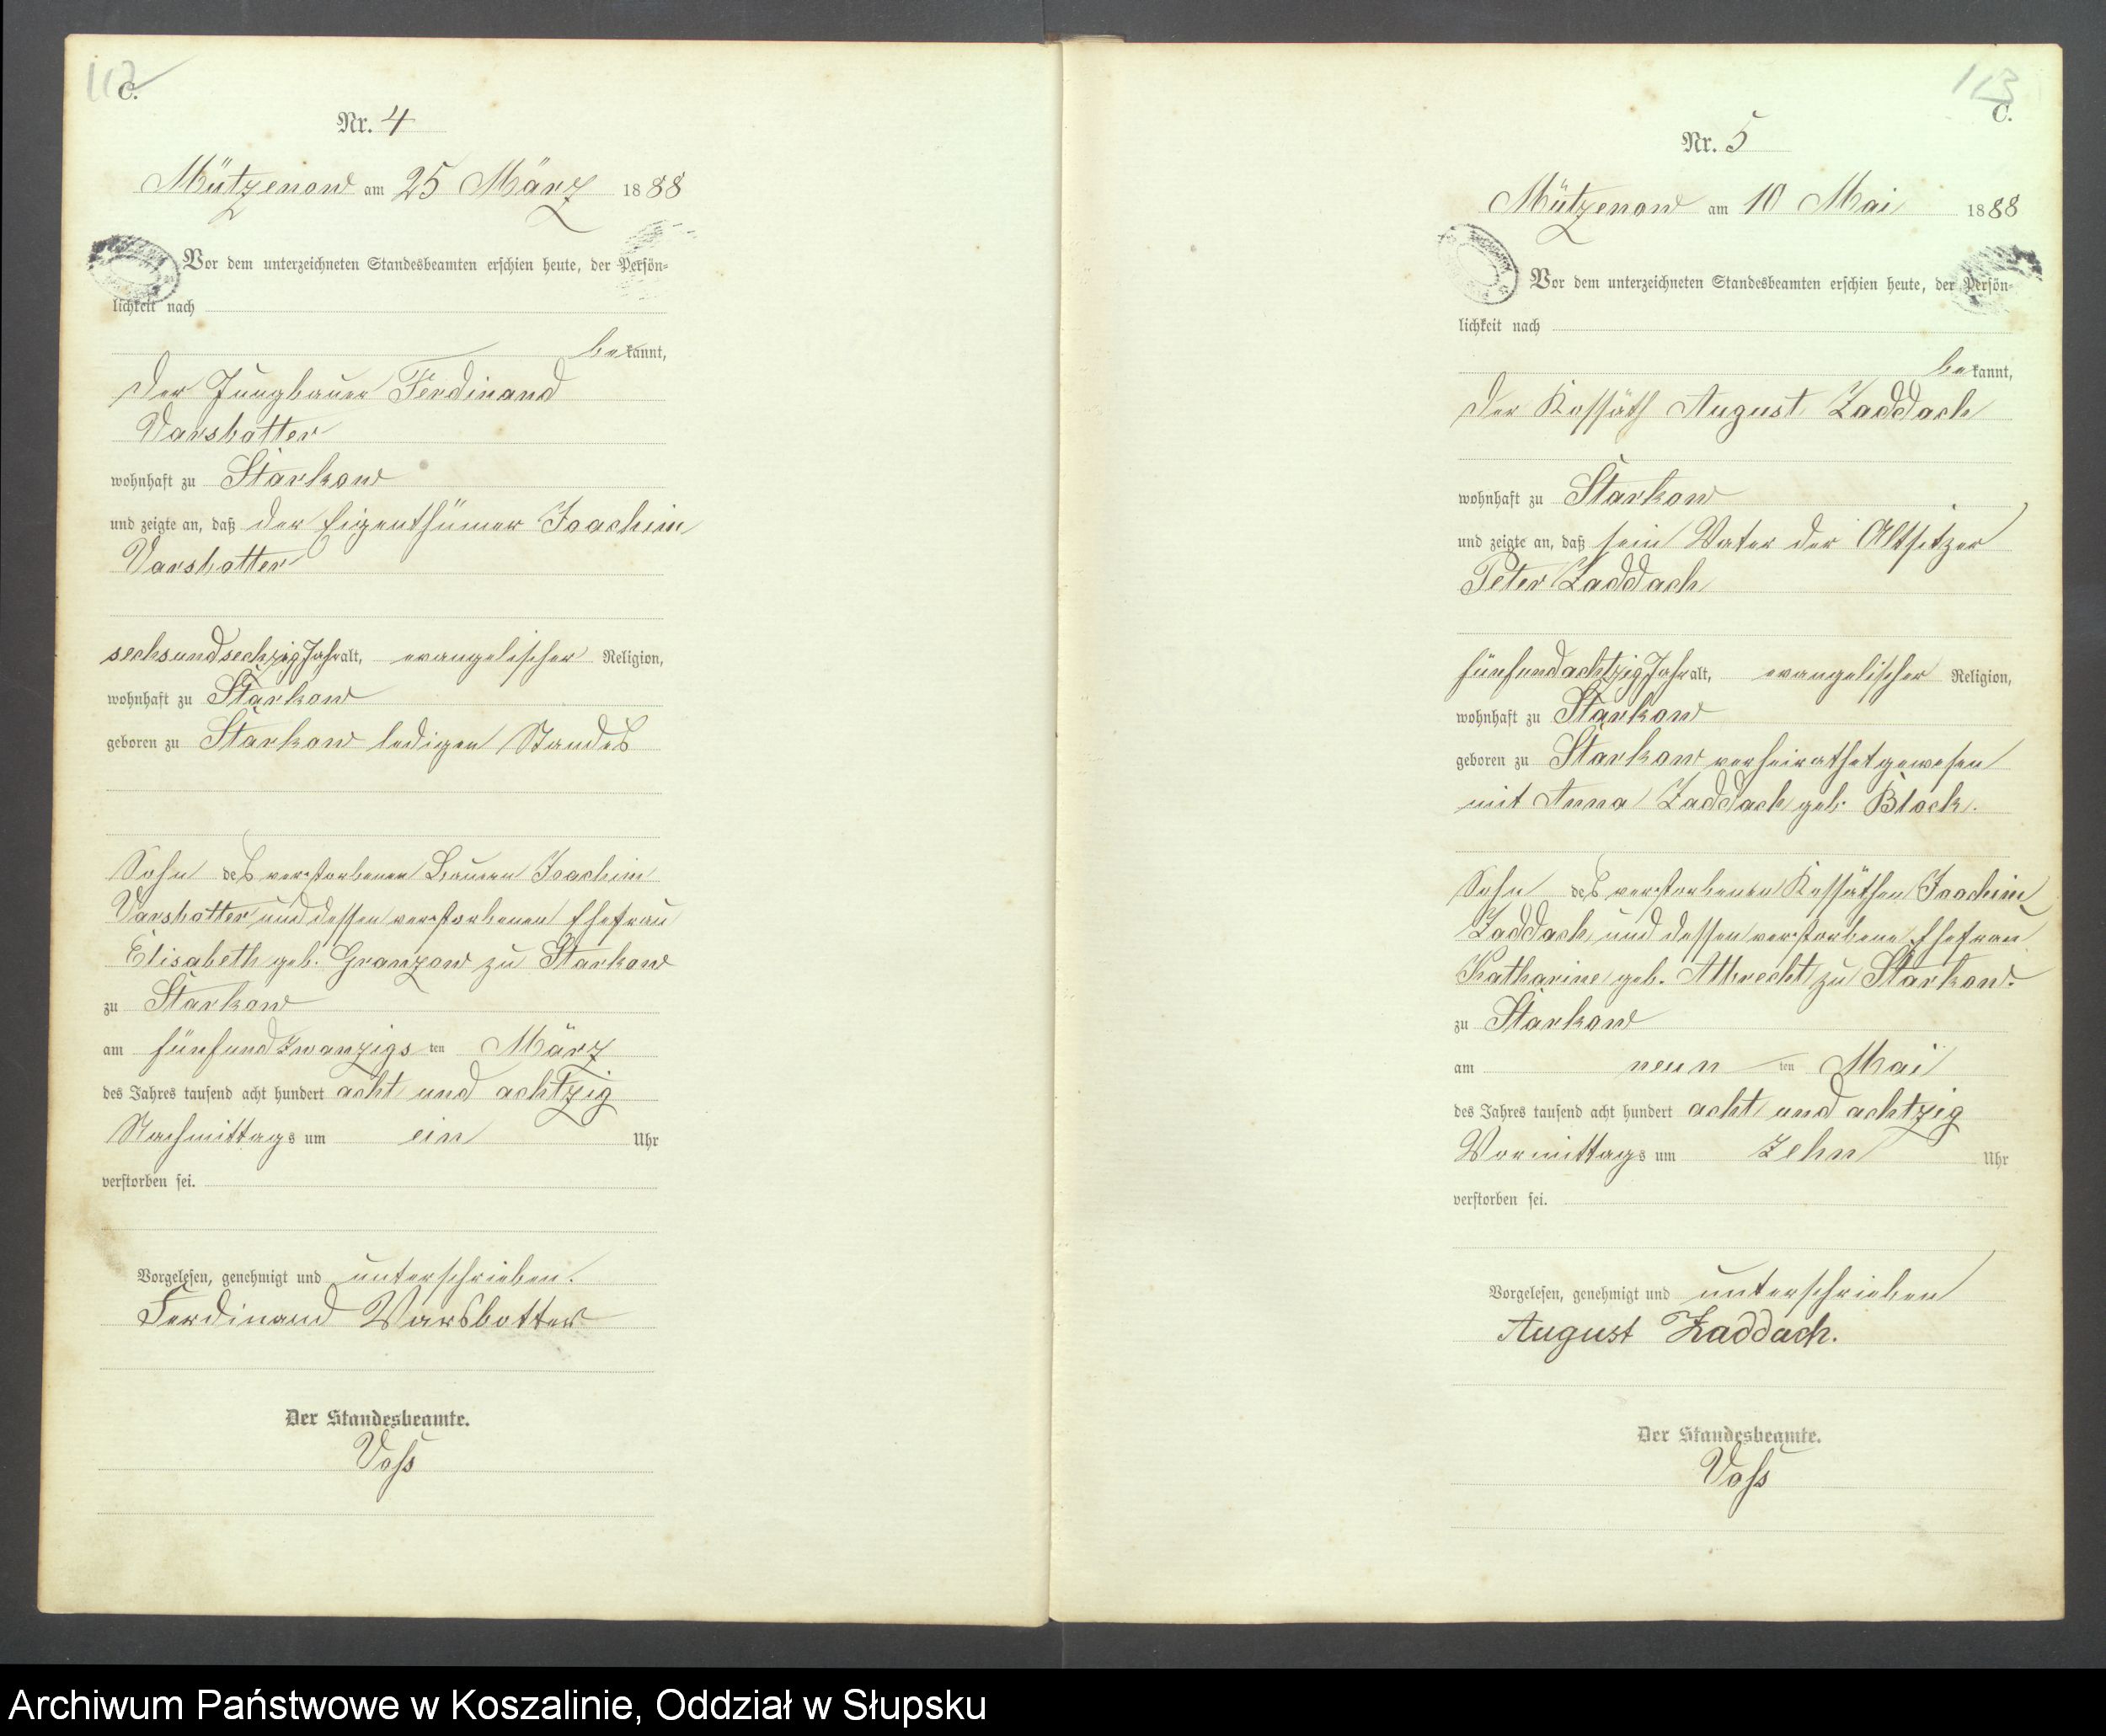 112
C.
Nr. 4
Mützenow am 25 März 1888
Vor dem unterzeichneten Standesbeamten erschien heute, der Persön-
lichkeit nach
bekannt,
der Jungbauer Ferdinand
Varsbotter
wohnhaft zu Starkow
und zeigte an, daß der Eigenthümer Joachim
Varsbotter
sechsundsechzig Jahr alt, evangelischer Religion,
wohnhaft zu Starkow
geboren zu Starkow ledigen Standes
Sohn des verstorbenen Bauern Joachim
Varsbotter und dessen verstorbenen Ehefrau
Elisabeth geb. Granzow zu Starkow
zu Starkow
am fünfundzwanzigsten März
des Jahres tausend acht hundert acht und achtzig
Nachmittags um ein Uhr
verstorben sei.
Vorgelesen, genehmigt und unterschrieben.
Ferdinand Warsbotter
Der Standesbeamte.
Voß
113
C.
Nr. 5
Mützenow am 10 Mai 1888
Vor dem unterzeichneten Standesbeamten erschien heute, der Persön-
lichkeit nach
bekannt,
der Kossäth August Zaddach
wohnhaft zu Starkow
und zeigte an, daß sein Vater der Altsitzer
Peter Zaddach
fünfundachtzig Jahr alt, evangelischer Religion,
wohnhaft zu Starkow
geboren zu Starkow verheirathet gewesen
mit Anna Zaddach geb. Block.
Sohn des verstorbenen Kossäthen Joachim
Zaddach und dessen verstorbene Ehefrau
Katharine geb. Albrecht zu Starkow.
zu Starkow
am neunten Mai
des Jahres tausend acht hundert acht und achtzig
Vormittags um zehn Uhr
verstorben sei.
Vorgelesen, genehmigt und unterschrieben
August Zaddach.
Der Standesbeamte.
Voß
Archiwum Państwowe w Koszalinie, Oddział w Słupsku